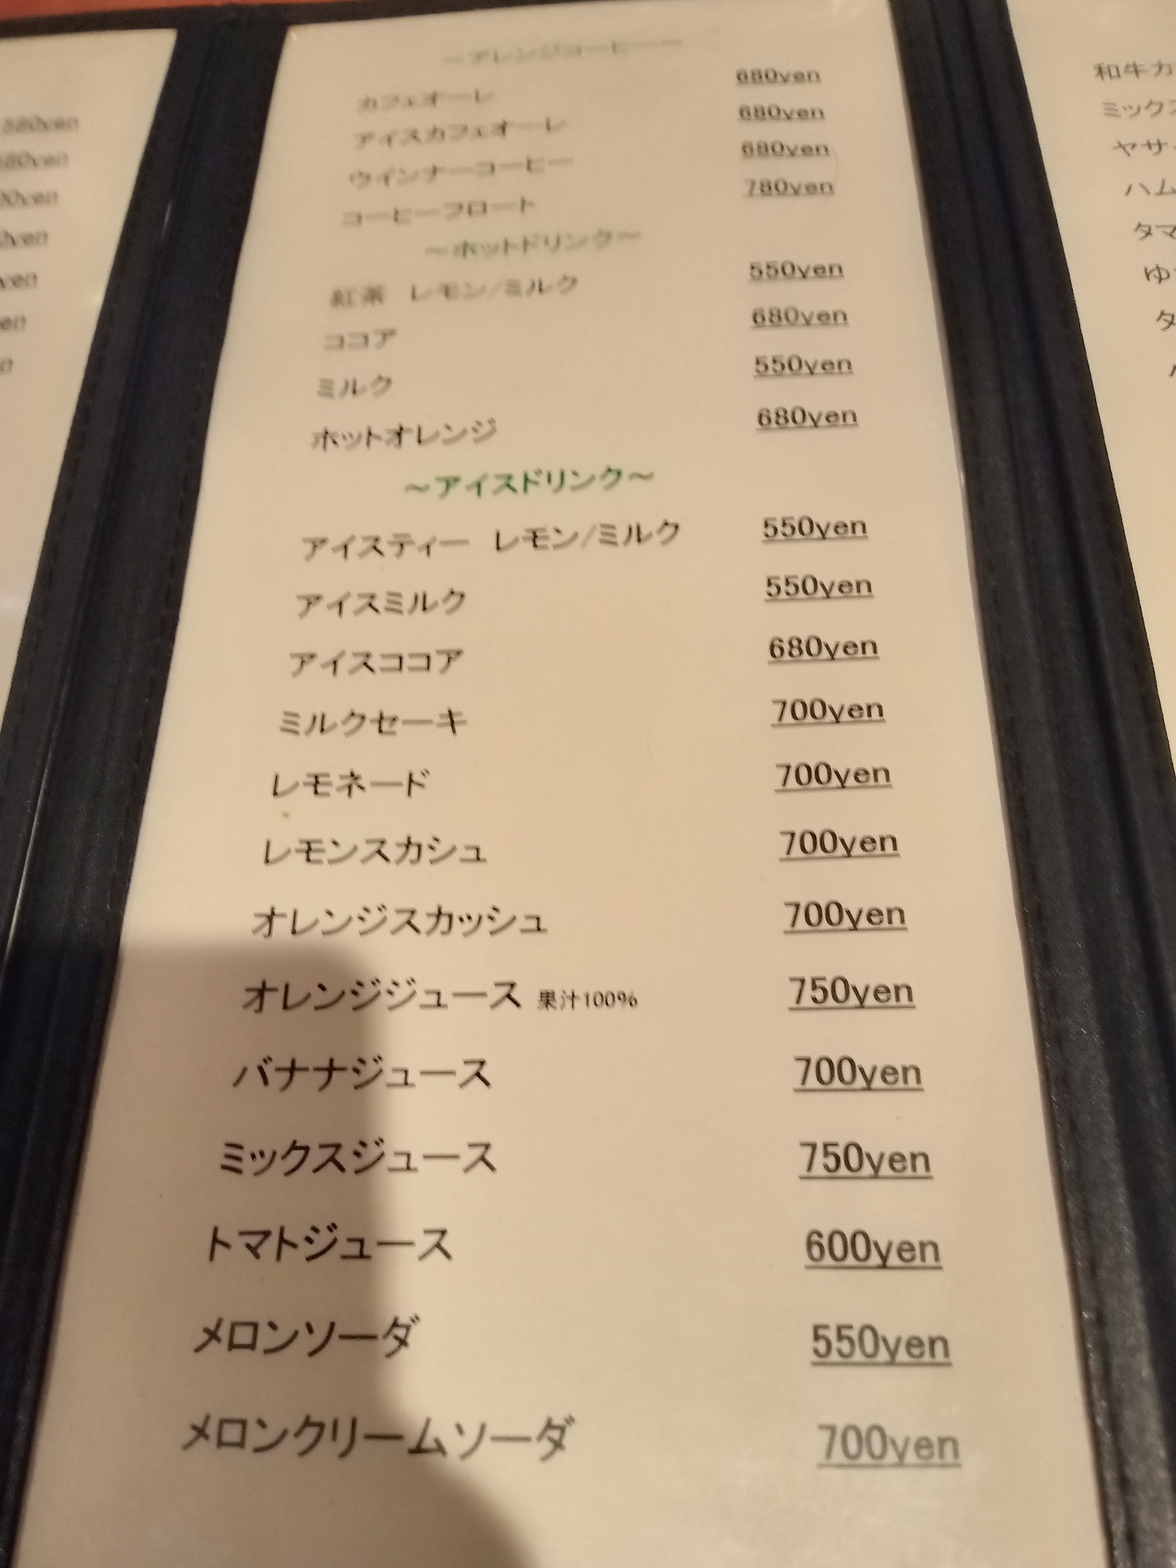 ~アレンジコーヒー~
カフェオーレ 680yen
アイスカフェオーレ 680yen
ウインナーコーヒー 680yen
コーヒーフロート 780yen
~ホットドリンク~
紅茶 レモン/ミルク 550yen
ココア 680yen
ミルク 550yen
ホットオレンジ 680yen
~アイスドリンク~
アイスティー レモン/ミルク 550yen
アイスミルク 550yen
アイスココア 680yen
ミルクセーキ 700yen
レモネード 700yen
レモンスカシュ 700yen
オレンジスカッシュ 700yen
オレンジジュース 果汁100% 750yen
バナナジュース 700yen
ミックスジュース 750yen
トマトジュース 600yen
メロンソーダ 550yen
メロンクリームソーダ 700yen
和牛カ
ミックス
ヤサ
ハム
タマ
ゆ
タ